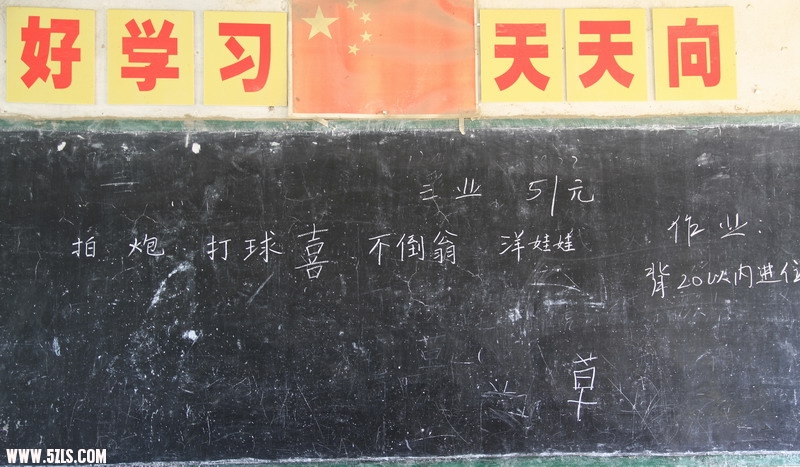 好学习 天天向
三业 51元
拍 炮 打球 喜 不倒翁 洋娃娃
作业：
背20以内进位
业 草
WWW.5ZLS.COM